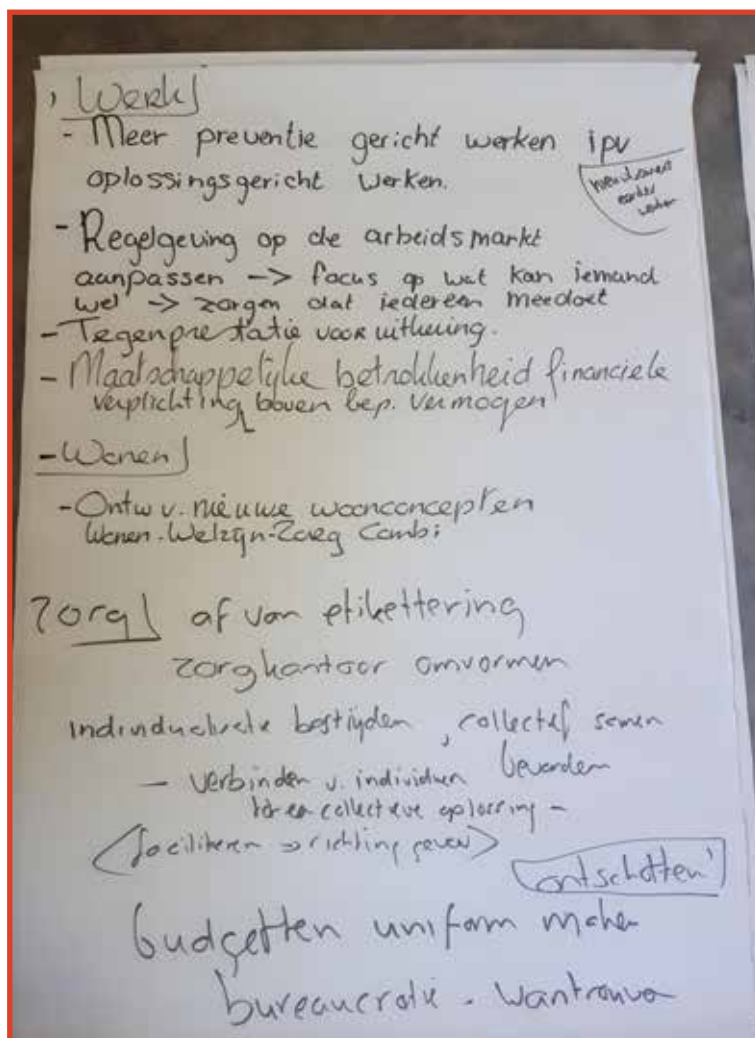 Werk
- Meer preventie gericht werken ipv
oplossingsgericht werken.
eerder
- Regelgeving op de arbeidsmarkt
aanpassen -> focus op wat kan iemand
wel -> zorgen dat iedereen meedoet
- Tegenprestatie voor uitkering.
- Maatschappelijke betrokkenheid financiele
verplichting boven bep. vermogen
- Wonen
- Ontw v. nieuwe woonconcepten
Wonen-Welzijn-Zorg Combi
Zorg af van etikettering
zorgkantoor omvormen
bestrijden, collectief samen
bevorderen
- verbinden v. individuen
tot een collectieve oplossing -
<faciliteren -> richting geven>
ontschotten'
budgetten uniform maken
bureaucratie - wantrouwen